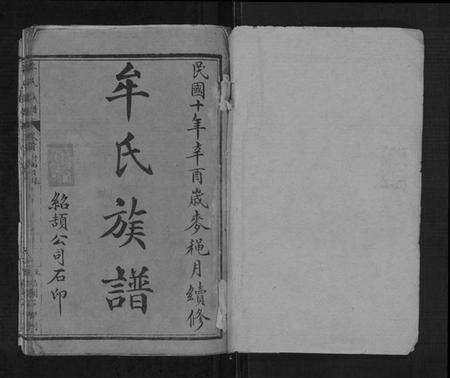 民國十年辛酉歲麥穐月續修
牟氏族譜
紹頡公司石印